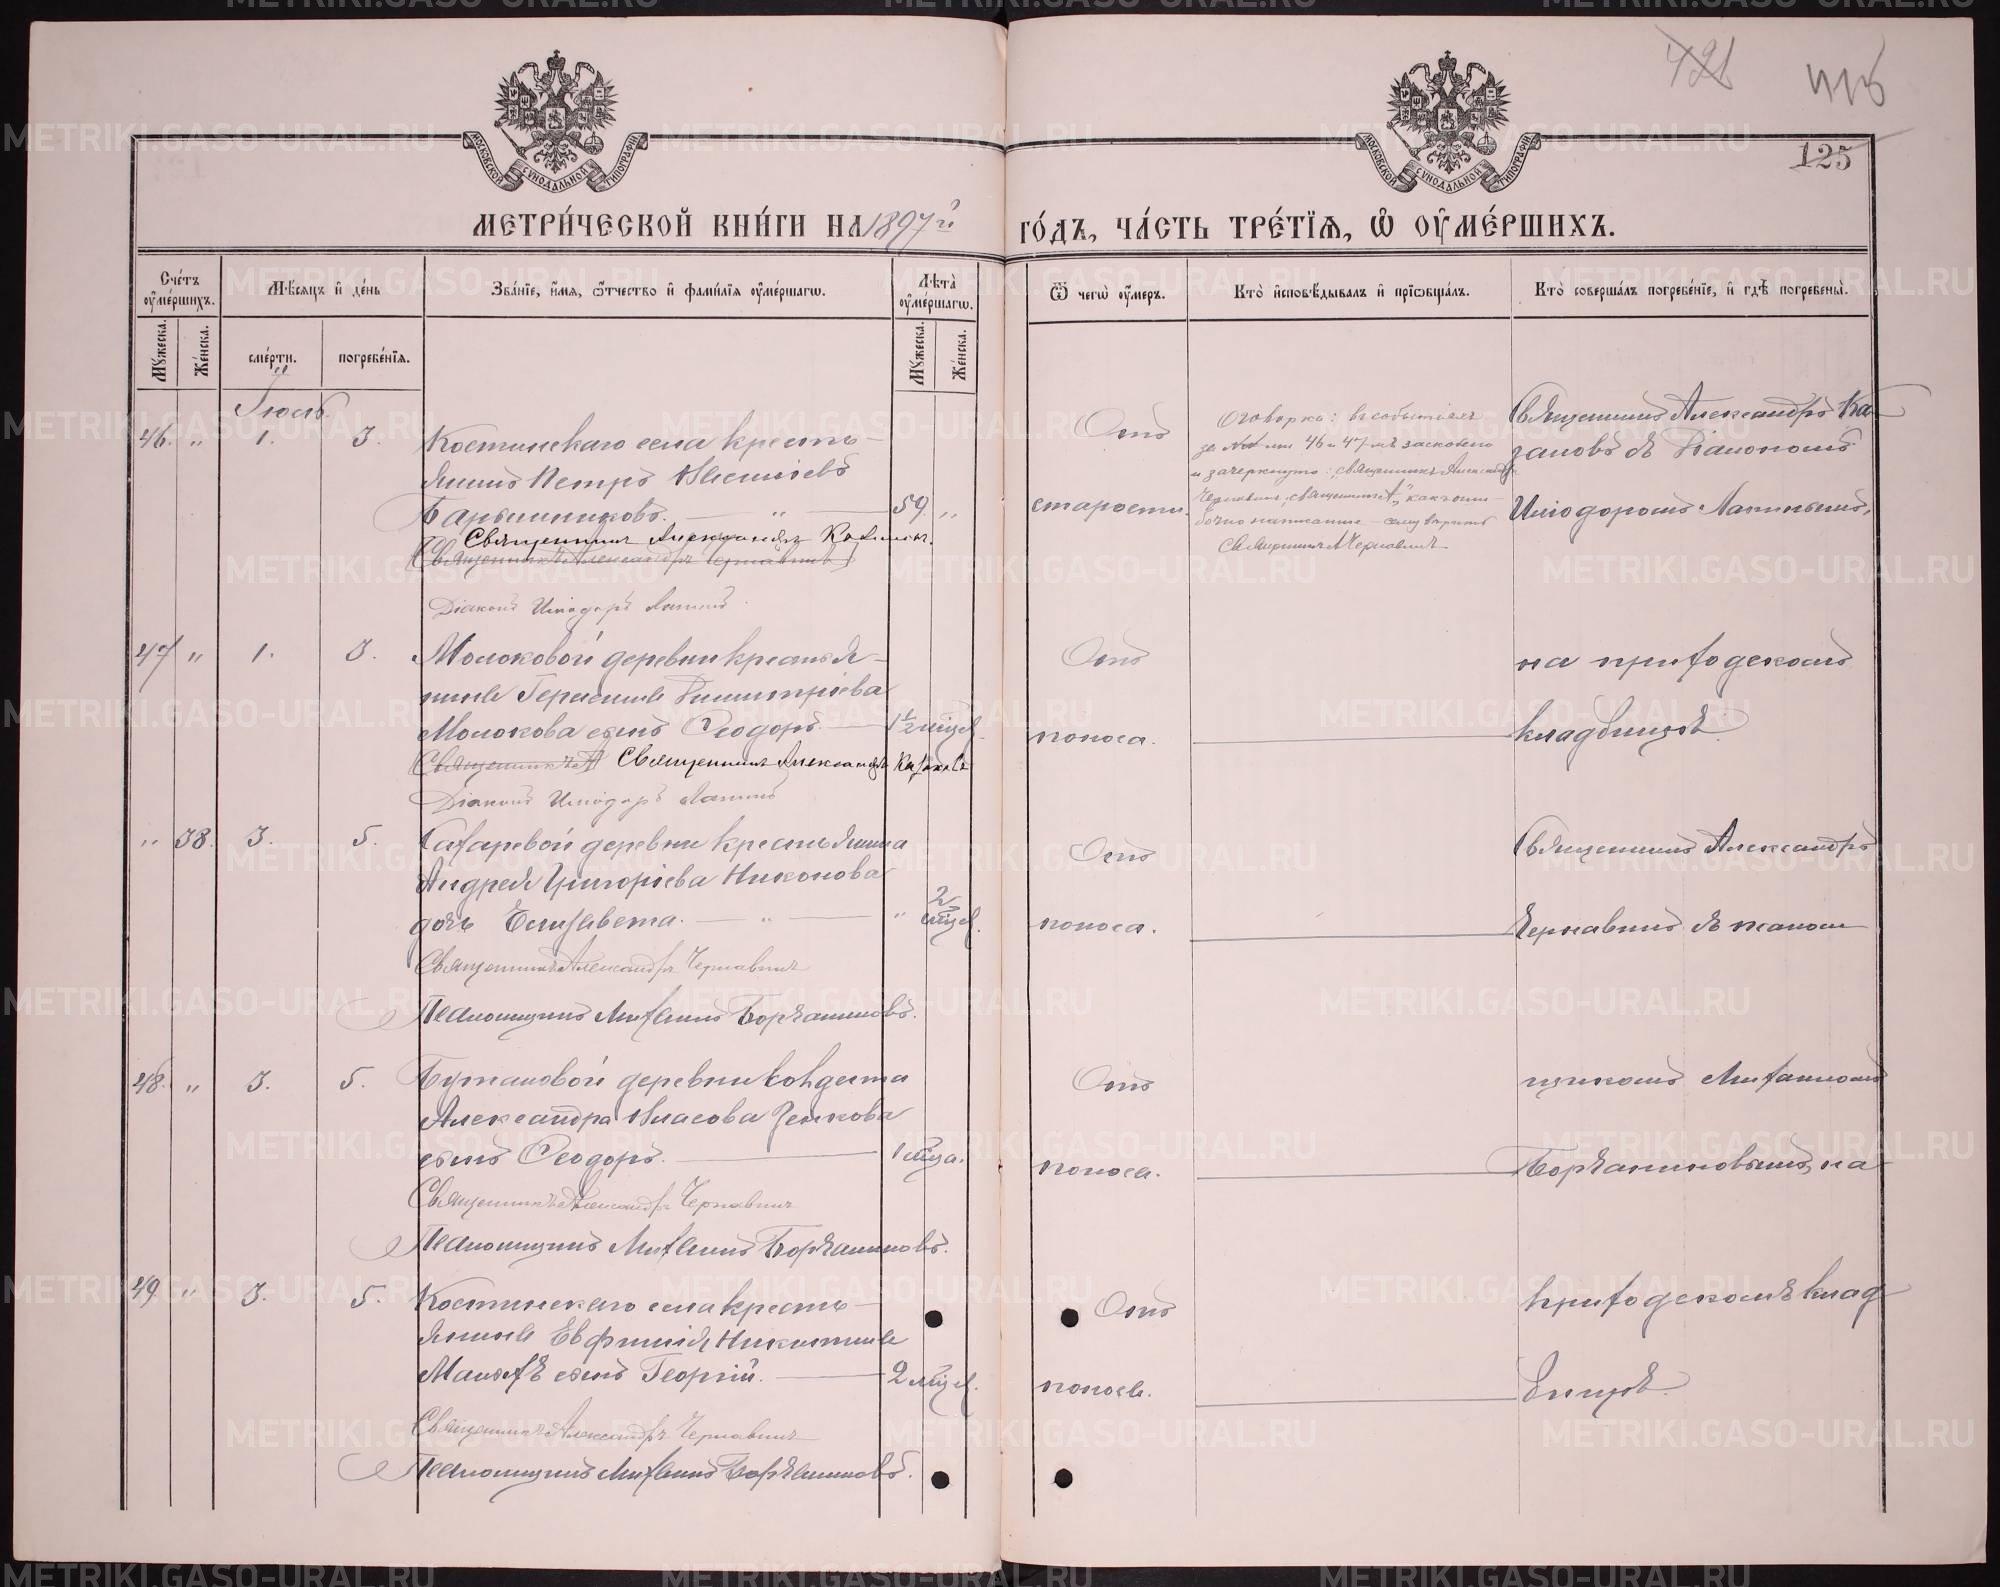 421
416
125
МОСКОВСКОЙ СѴНОДАЛЬНОЙ ТИПОГРАФІИ
МОСКОВСКОЙ СѴНОДАЛЬНОЙ ТИПОГРАФІИ
МЕТРИ́ЧЕСКОЙ КНИ́ГИ НА 1897й
ГО́ДЪ, ЧА́СТЬ ТРЕ́ТІѦ, Ѡ ОУ҆МЕ́РШИХЪ.
Сче́тъ оу҆ме́ршихъ.
Мꙋжеска.
Же́нска.
Мѣ́сѧцъ и҆ де́нь
сме́рти.
погребе́нїѧ.
Зва́нїе, и҆́мѧ, ѻ҆́тчество и҆ фами́лїѧ оу҆ме́ршагѡ.
Лѣ́та оу҆ме́ршагѡ.
Мꙋжеска.
Же́нска.
Ѿ чегѡ̀ оу҆́меръ.
Кто̀ и҆сповѣ́дывалъ и҆ прїѡбща́лъ.
Кто̀ соверша́лъ погребе́нїе, и҆ гдѣ̀ погребены̀.
Іюль
46. " 1. 3. Костинскаго села кресть-
янинъ Петръ Васильевъ
Барышниковъ. — " — 59. "
Священникъ Александръ Казановъ.
Священникъ Александръ Чернавинъ
Діаконъ Илиодоръ Лапинъ.
Отъ
старости.
Оговорка: в событіях
за №№ ми 46 и 47 мъ заскоблено
и зачеркнуто: "священникъ Александръ
Чернавинъ, священникъ А", какъ оши-
бочно написанное — сему верить
Священникъ А Чернавинъ
Священникъ Александръ Ка-
зановъ съ Діакономъ
Илиодоромъ Лапинымъ,
47 " 1. 3. Молоковой деревни крестья-
нина Герасима Димитріева
Молокова сынъ Ѳеодоръ. — 1½ мѣсяц.
Священникъ А Священникъ Александръ Казановъ
Діаконъ Илиодоръ Лапинъ
Отъ
поноса.
на приходскомъ
кладбищѣ.
" 38. 3. 5. Сахаревой деревни крестьянина
Андрея Григоріева Никонова
дочь Елизавета. — " — " 2 мѣсяц.
Священникъ Александръ Чернавинъ
Псаломщикъ Михаилъ Борчаниновъ.
Отъ
поноса.
Священникъ Александръ
Чернавинъ съ псалом-
48. " 3. 5. Бунановой деревни солдата
Александра Власова
сынъ Ѳеодоръ. — 1 мѣсяца.
Священникъ Александръ Чернавинъ
Псаломщикъ Михаилъ Борчаниновъ.
Отъ
поноса.
щикомъ Михаиломъ
Борчаниновымъ, на
49. " 3. 5. Костинскаго села кресть-
янина Евфимія Никитина
Малыхъ сынъ Георгій. — 2 мѣсяц.
Священникъ Александръ Чернавинъ
Псаломщикъ Михаилъ Борчаниновъ.
Отъ
поноса.
приходскомъ клад-
бищѣ.
METRIKI.GASO-URAL.RU